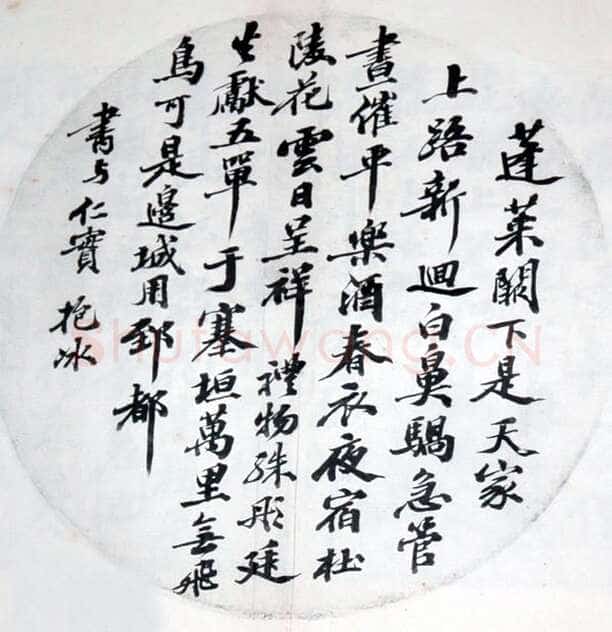 蓬萊闕下是天家
上路新迴白鼻騧急管
晝催平樂酒春衣夜宿杜
陵花雲日呈祥禮物殊彤廷
生獻五單于塞垣萬里無飛
鳥可是邊城用郅都
書与仁寶 抱冰
Shufawang.CN